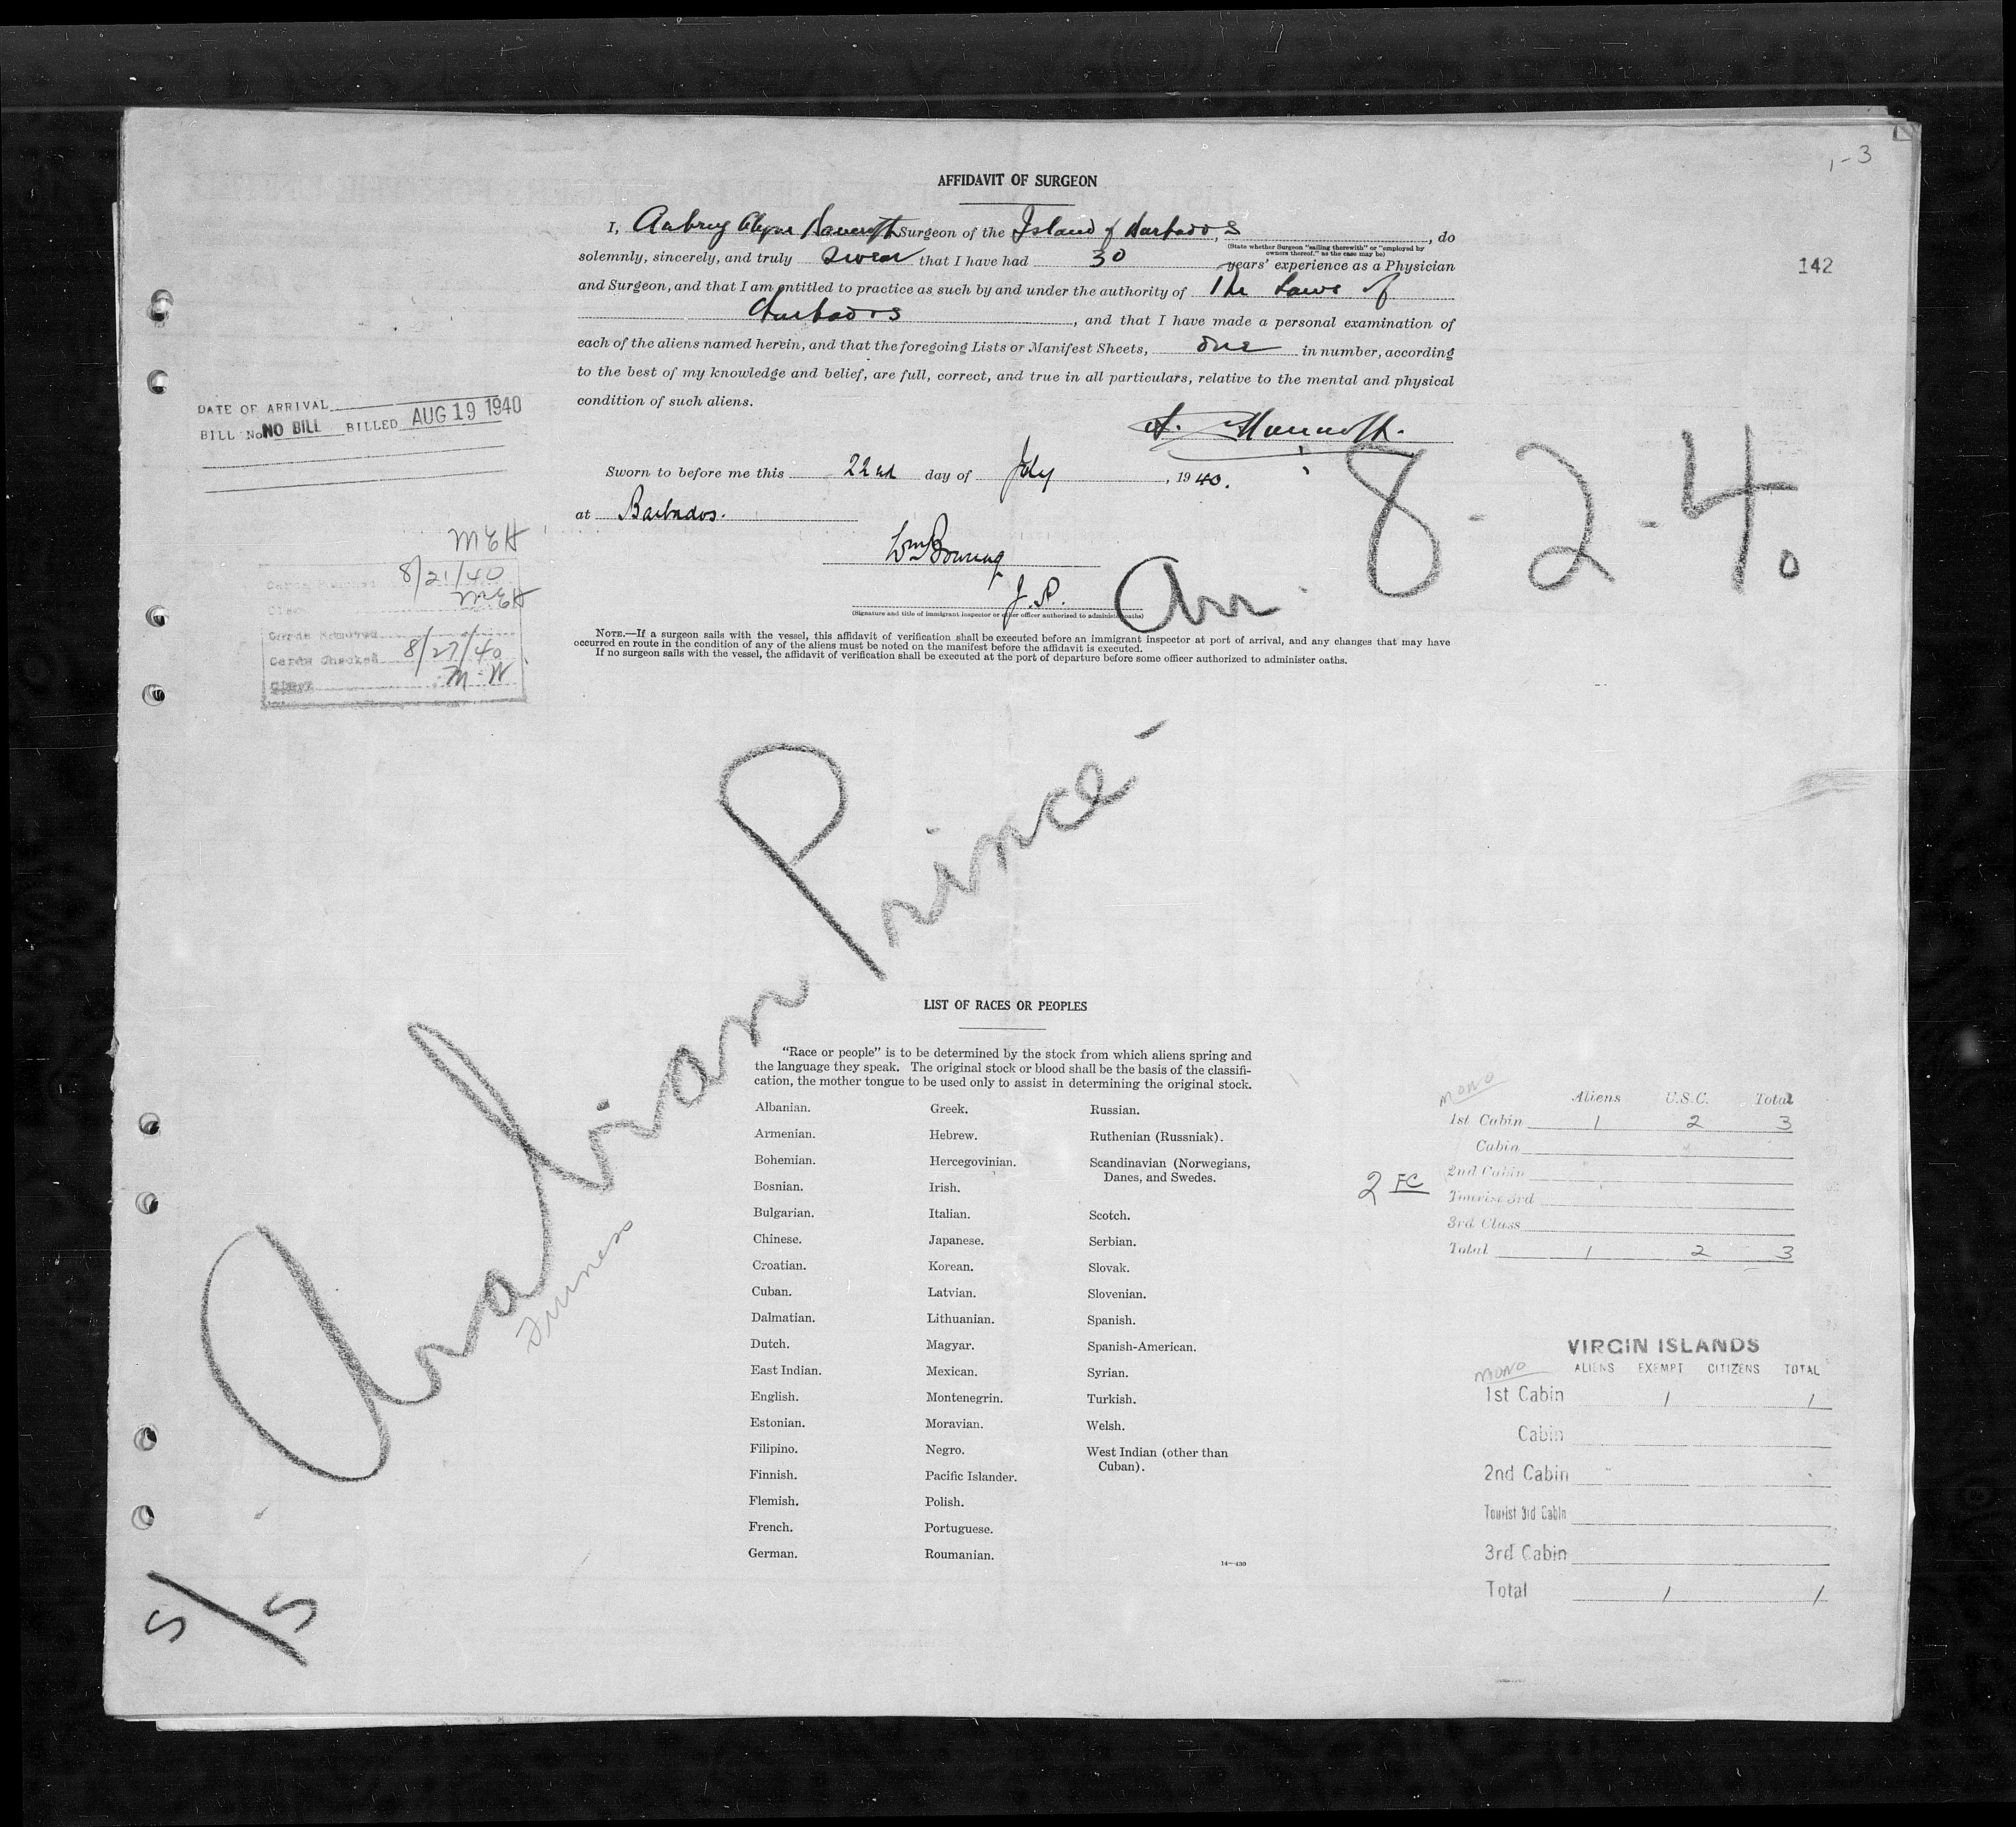 1-3
AFFIDAVIT OF SURGEON
I, Aubrey Surgeon of the Island of Barbados, , do
(State whether Surgeon "sailing therewith" or "employed by
owners thereof," as the case may be)
solemnly, sincerely, and truly Swear that I have had 30 years' experience as a Physician
142
and Surgeon, and that I am entitled to practice as such by and under the authority of The Laws of
Barbados, and that I have made a personal examination of
each of the aliens named herein, and that the foregoing Lists or Manifest Sheets, one in number, according
to the best of my knowledge and belief, are full, correct, and true in all particulars, relative to the mental and physical
condition of such aliens.
DATE OF ARRIVAL
BILL No NO BILL BILLED AUG 19 1940
Sworn to before me this 22nd day of July, 1940.
at Barbados.
J.P.
(Signature and title of immigrant inspector or other officer authorized to administer oaths)
Arr. 8-2-40
NOTE.—If a surgeon sails with the vessel, this affidavit of verification shall be executed before an immigrant inspector at port of arrival, and any changes that may have
occurred en route in the condition of any of the aliens must be noted on the manifest before the affidavit is executed.
If no surgeon sails with the vessel, the affidavit of verification shall be executed at the port of departure before some officer authorized to administer oaths.
MEH
8/21/40
MEH
Cards Checked 8/27/40
Clerk M.W
S/S Arabian Prince
Furness
LIST OF RACES OR PEOPLES
"Race or people" is to be determined by the stock from which aliens spring and
the language they speak. The original stock or blood shall be the basis of the classifi-
cation, the mother tongue to be used only to assist in determining the original stock.
Albanian.
Armenian.
Bohemian.
Bosnian.
Bulgarian.
Chinese.
Croatian.
Cuban.
Dalmatian.
Dutch.
East Indian.
English.
Estonian.
Filipino.
Finnish.
Flemish.
French.
German.
Greek.
Hebrew.
Hercegovinian.
Irish.
Italian.
Japanese.
Korean.
Latvian.
Lithuanian.
Magyar.
Mexican.
Montenegrin.
Moravian.
Negro.
Pacific Islander.
Polish.
Portuguese.
Roumanian.
Russian.
Ruthenian (Russniak).
Scandinavian (Norwegians,
Danes, and Swedes.
Scotch.
Serbian.
Slovak.
Slovenian.
Spanish.
Spanish-American.
Syrian.
Turkish.
Welsh.
West Indian (other than
Cuban).
14—430
MONO
Aliens U.S.C. Total
1st Cabin 1 2 3
Cabin
2nd Cabin
2 FC
Tourist 3rd
3rd Class
Total 1 2 3
VIRGIN ISLANDS
MONO
ALIENS EXEMPT CITIZENS TOTAL
1st Cabin 1 1
Cabin
2nd Cabin
Tourist 3rd Cabin
3rd Cabin
Total 1 1